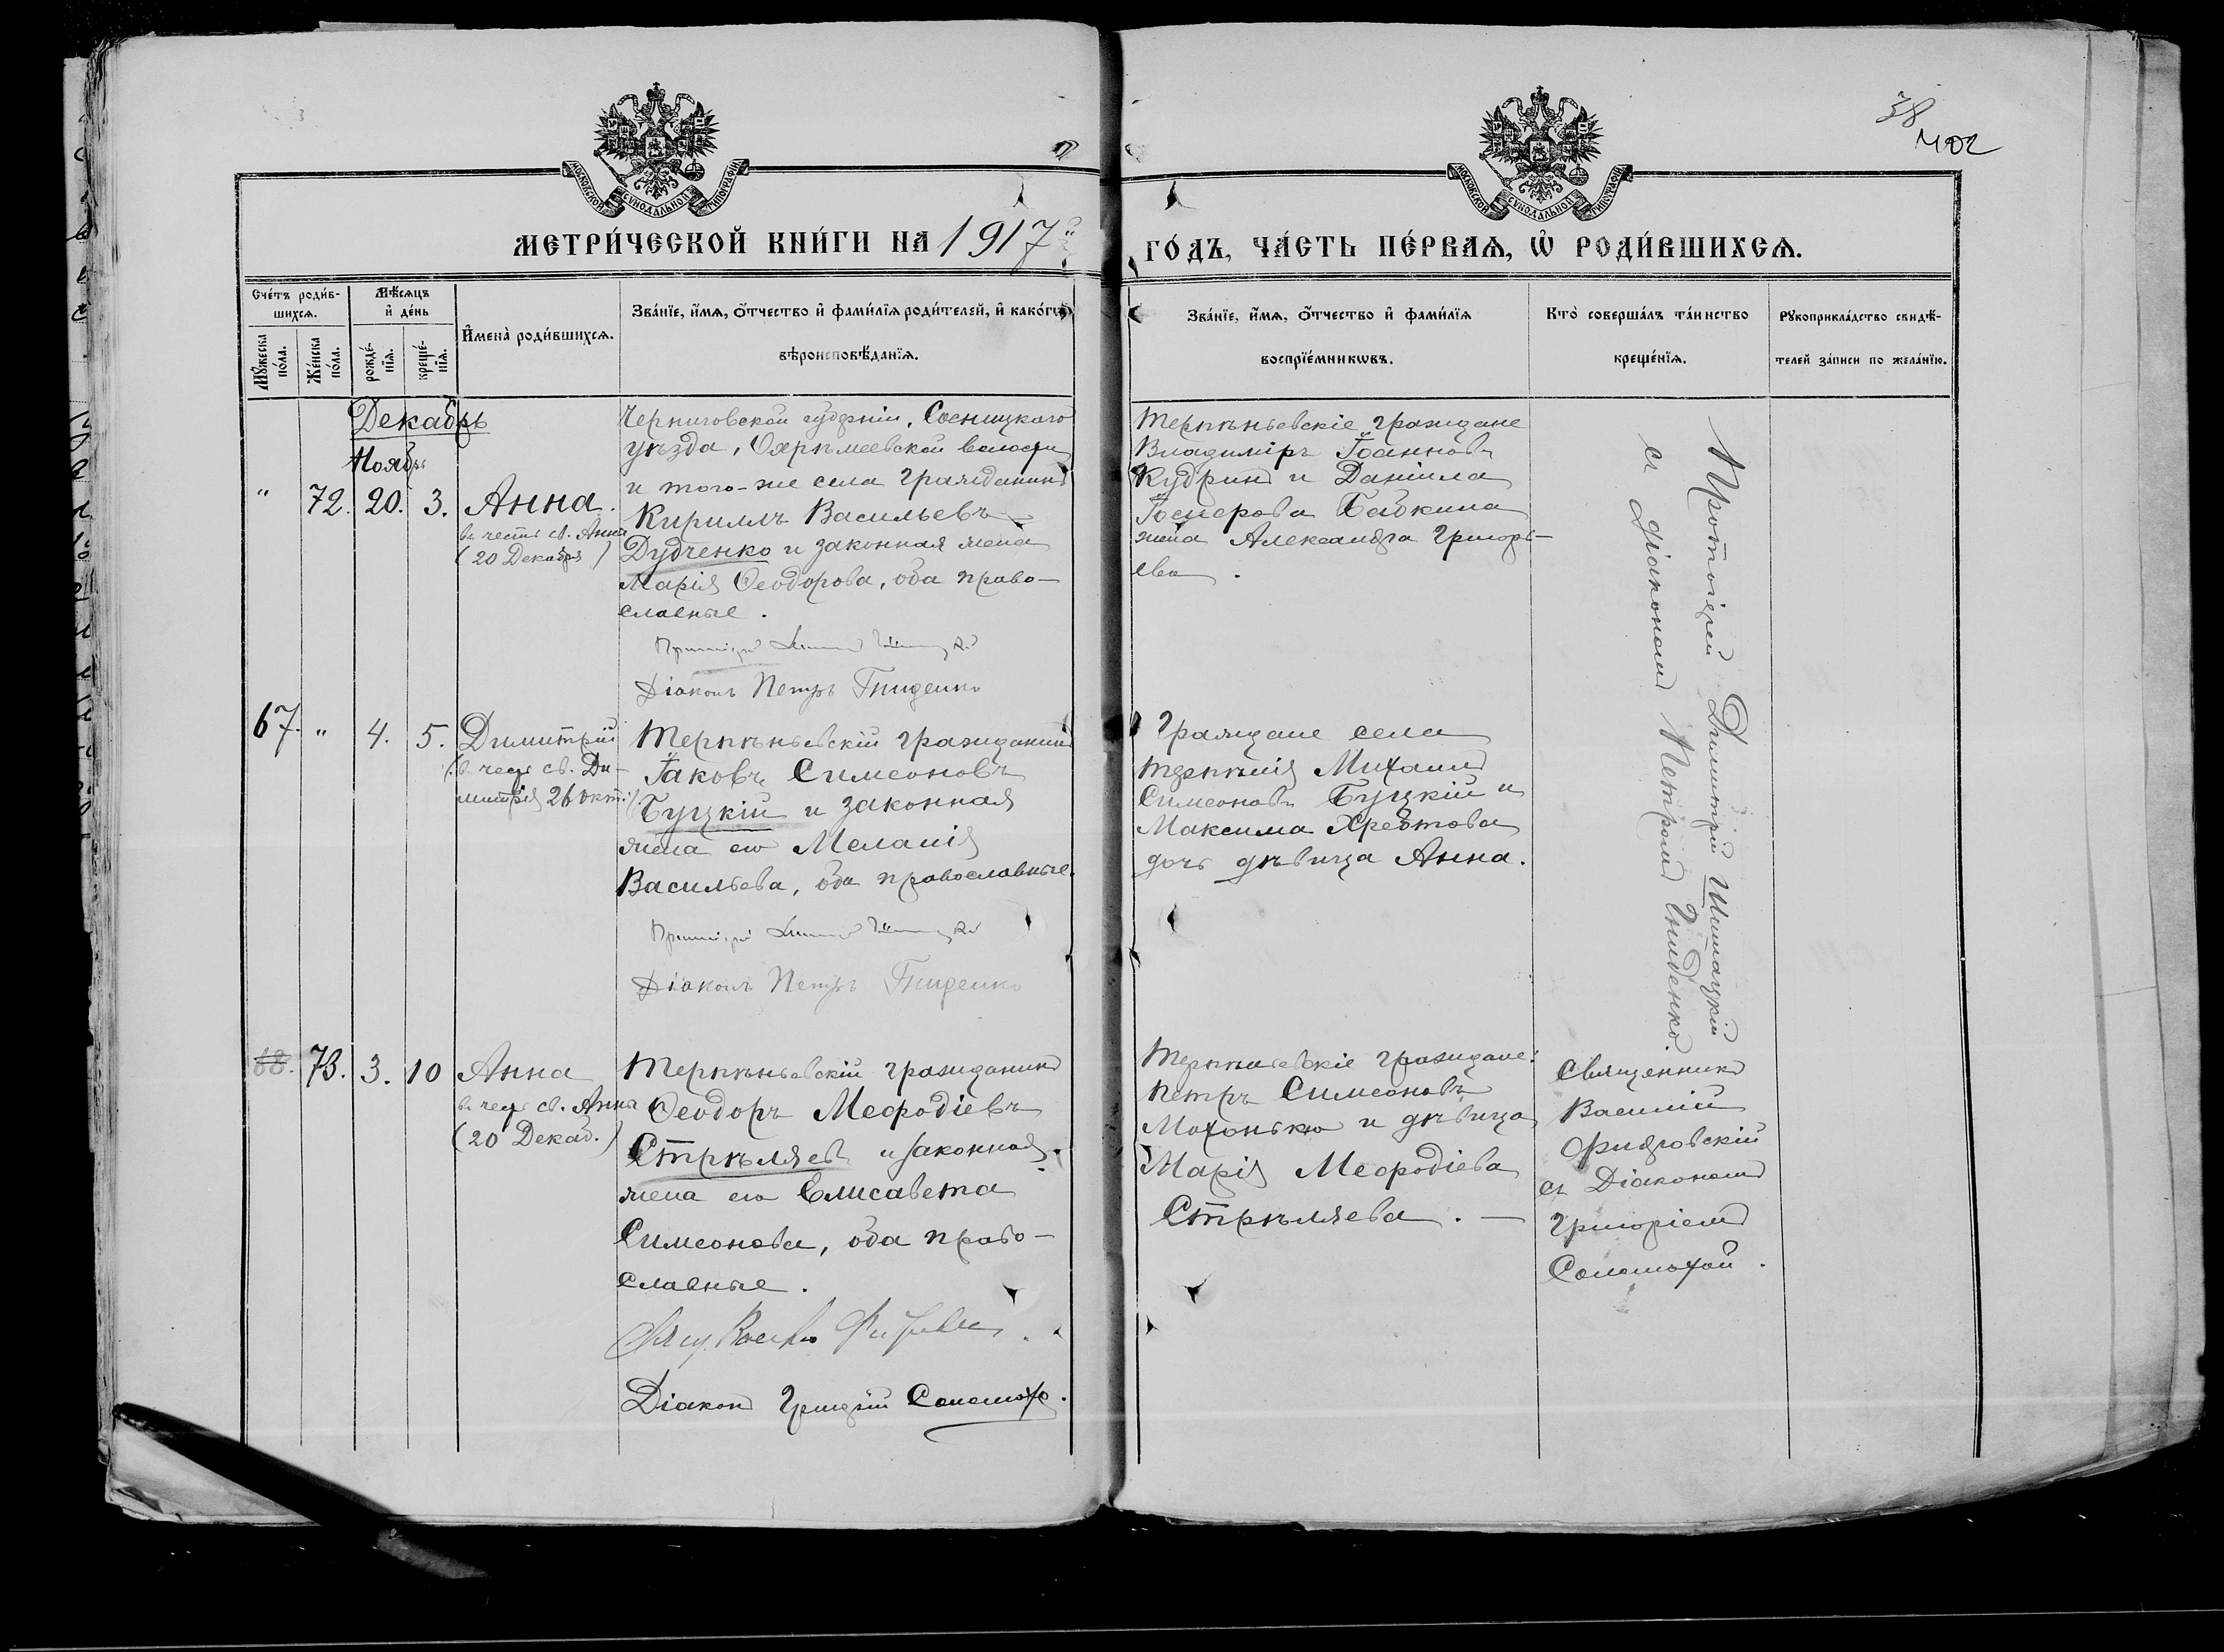 38
402
МОСКОВСКОЙ СУНОДАЛЬНОЙ ТИПОГРАФІИ
МОСКОВСКОЙ СУНОДАЛЬНОЙ ТИПОГРАФІИ
МЕТРИ́ЧЕСКОЙ КНИ́ГИ НА 1917й
ГО́ДЪ, ЧА́СТЬ ПЕ́РВАѦ, Ѡ҆ РОДИ́ВШИХСѦ.
Сче́тъ роди́в-
шихсѧ.
Мꙋ́жеска по́ла.
Же́нска по́ла.
Мѣ́сѧцъ
и҆ де́нь
рожде́-
нїѧ.
креще́-
нїѧ.
И҆мена̀ роди́вшихсѧ.
Зва́нїе, и҆́мѧ, ѻ҆́тчество и҆ фами́лїѧ роди́телей, и҆ како́гѡ
вѣроисповѣ́данїѧ.
Зва́нїе, и҆́мѧ, ѻ҆́тчество и҆ фами́лїѧ
воспрїе́мникѡвъ.
Кто̀ соверша́лъ та́инство
креще́нїѧ.
Рꙋкоприкла́дство свидѣ́-
телей за́писи по жела́нїю.
Декабрь
Ноябрь
" 72. 20. 3. Анна.
въ честь св. Анны
(20 Декабря)
Черниговской губерніи, Сосницкаго
уѣзда, Охрѣмеевской волости
и того-же села гражданинъ
Кириллъ Васильевъ
Дудченко и законная жена
Марія Ѳеодорова, оба право-
славные.
Діаконъ Петръ Гниденко
Терпѣньевскіе граждане
Владиміръ Іоанновъ
Кудринъ и Даніила
Іосифова Бабкина
жена Александра Григорь-
ева.
Протоіерей Димитрій Шишацкій
съ діакономъ Петромъ Гниденко.
67. " 4. 5. Димитрій
(въ честь св. Ди-
митрія 26 окт.)
Терпѣньевскій гражданинъ
Іаковъ Симеоновъ
Буцкій и законная
жена его Меланія
Васильева, оба православные.
Діаконъ Петръ Гниденко
Граждане села
Терпѣнія Михаилъ
Симеоновъ Буцкій и
Максима Хребтова
дочь дѣвица Анна.
68. 73. 3. 10 Анна
въ честь св. Анны
(20 Декаб.)
Терпѣньевскій гражданинъ
Ѳеодоръ Меѳодіевъ
Стрѣляевъ и законная
жена его Елисавета
Симеонова, оба право-
славные.
Діаконъ Григорій Соломаха.
Терпѣньевскіе граждане:
Петръ Симеоновъ
Махонько и дѣвица
Марія Меѳодіева
Стрѣляева. —
Священникъ
Василій
съ Діакономъ
Григоріемъ
Соломахой.